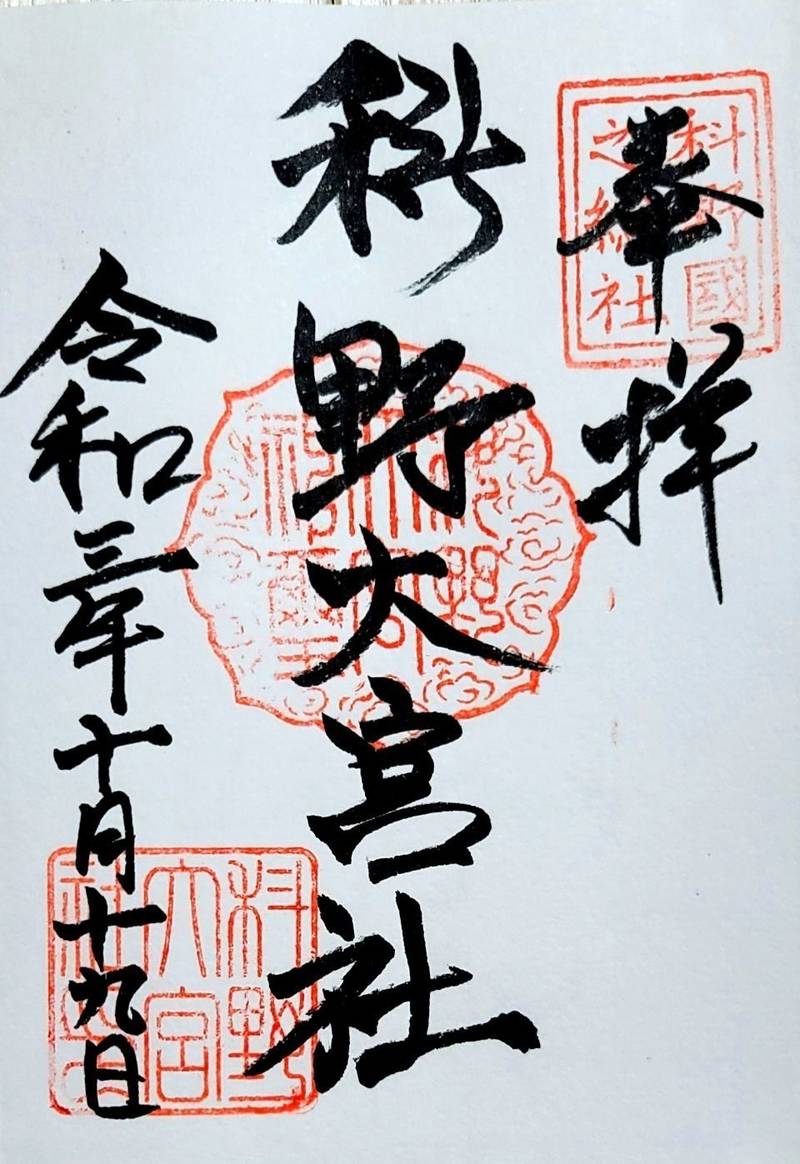 奉拝
科野國
之總社
科野大宮社
令和三年十月十九日
科野
大宮